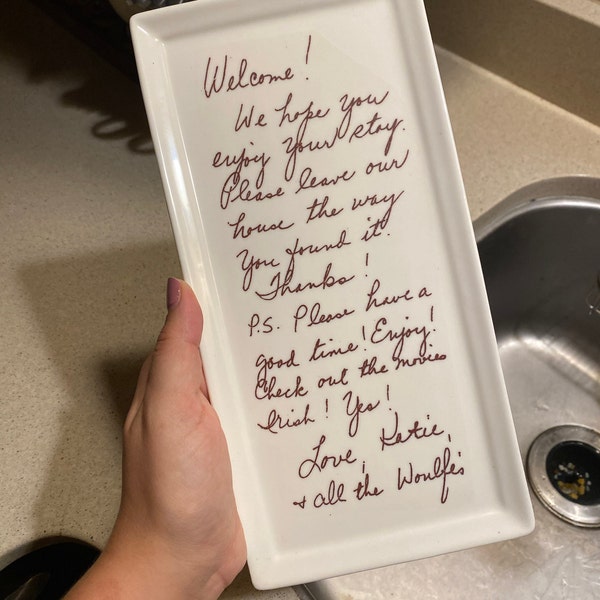 Welcome!
We hope you
enjoy your stay.
Please leave our
house the way
you found it.
Thanks!
P.S. Please have a
good time! Enjoy!
Check out the movies
Irish! Yes!
Love, Katie,
+ all the Woulfe's